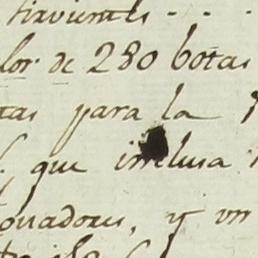 sirvientes - - -
lor de 280 botas
tas para la
que inclusa
ouadores, y un